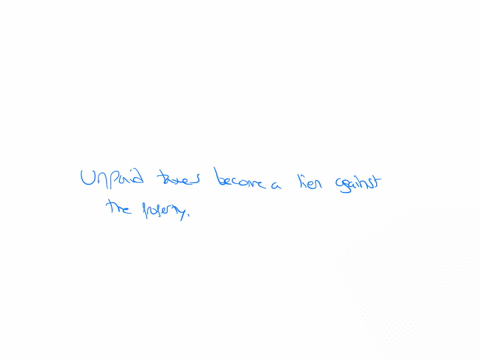 Unpaid taxes become a lien against
the property.